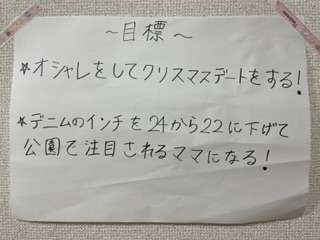 ~目標~
☆オシャレをしてクリスマスデートをする!
☆デニムのインチを24から22に下げて
公園で注目されるママになる!